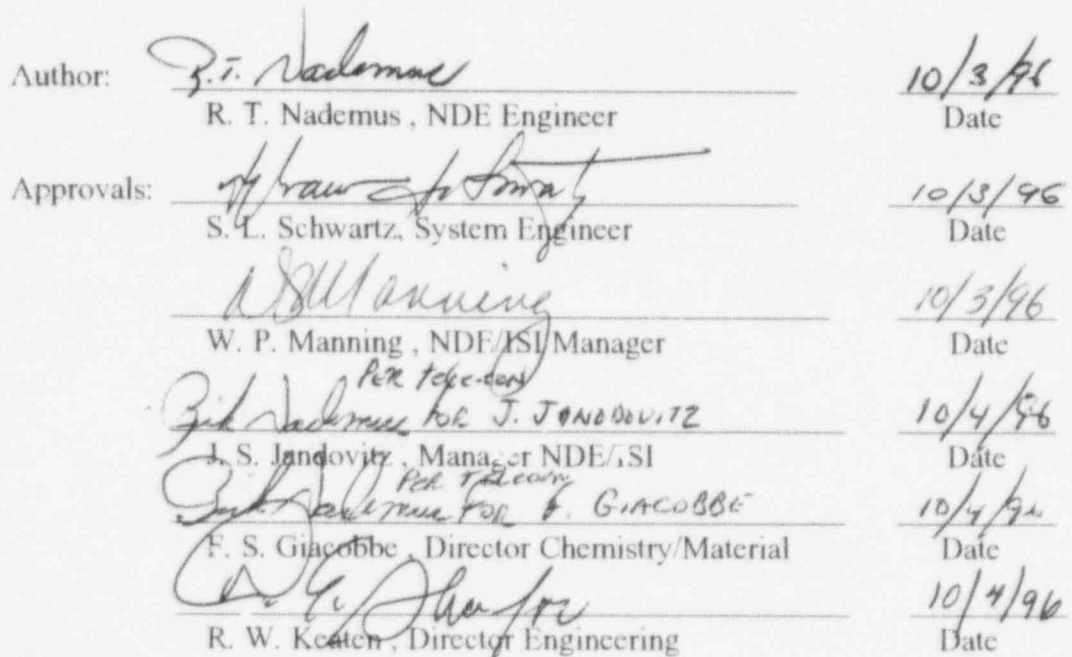 Author: R.T. Nademus 10/3/96
R. T. Nademus , NDE Engineer Date
Approvals: for 10/3/96
S. L. Schwartz, System Engineer Date
Manning 10/3/96
W. P. Manning , NDE/ISI Manager Date
PER tele-con
Nademus FOR J. JANODOVITZ 10/4/96
J. S. Jandovitz , Manager NDE/ISI Date
PER Telecom
Nademus FOR F. GIACOBBE 10/4/96
F. S. Giacobbe , Director Chemistry/Material Date
for 10/4/96
R. W. Keaten , Director Engineering Date